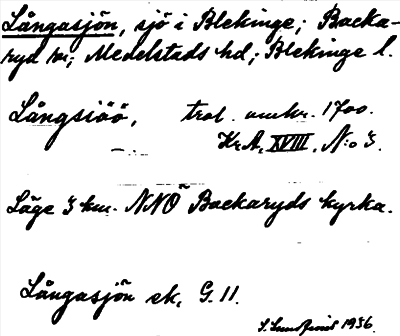 Långasjön, sjö i Blekinge; Backa-
ryd sn; Medelstads hd; Blekinge l.
Långsiöö, trol. omkr. 1700.
Kr.A. XVIII, N:o 3.
Läge 3 km. NNO Backaryds kyrka.
Långasjön ek, G. 11.
1936.